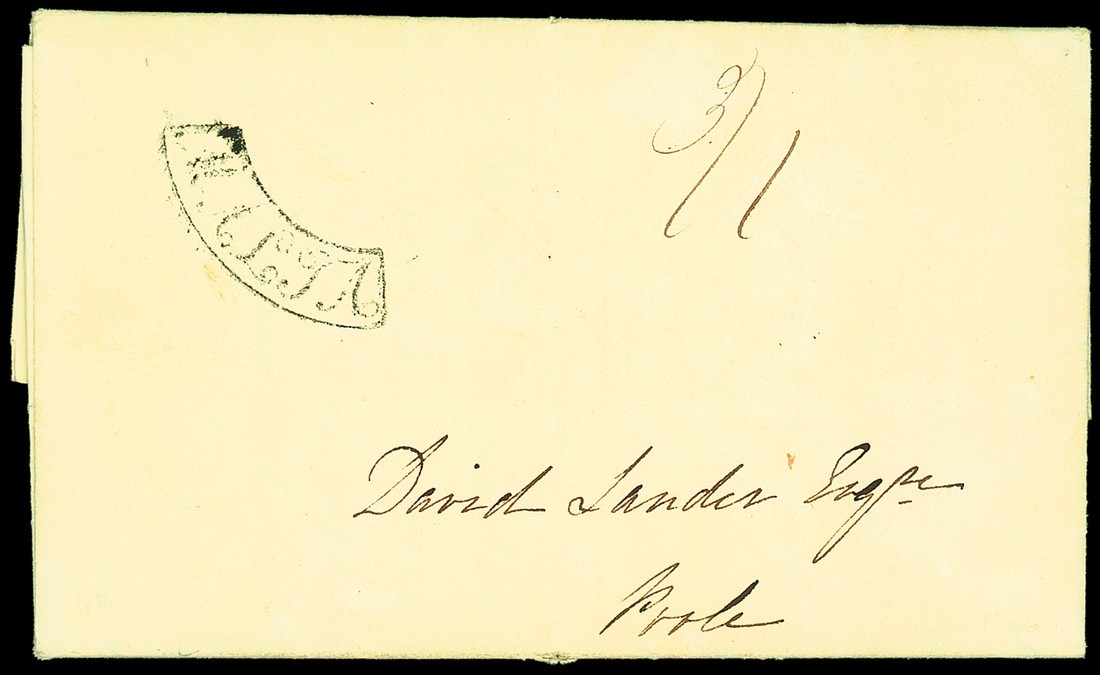 3/1
David Lander Esqre
Poole